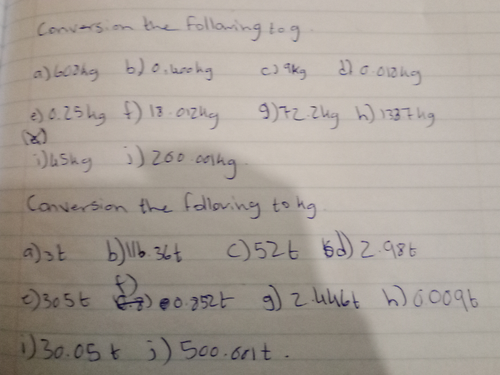 Conversion the following to g.
a) 602kg b) 0.400kg c) 9kg d) 0.012kg
e) 0.25kg f) 18.012kg g) 72.2kg h) 1337kg
i) 45kg j) 200.001kg
Conversion the following to kg
a) 3t b) 116.36t c) 52t d) 2.98t
e) 305t f) 0.252t g) 2.446t h) 0.009t
i) 30.05t j) 500.001t.